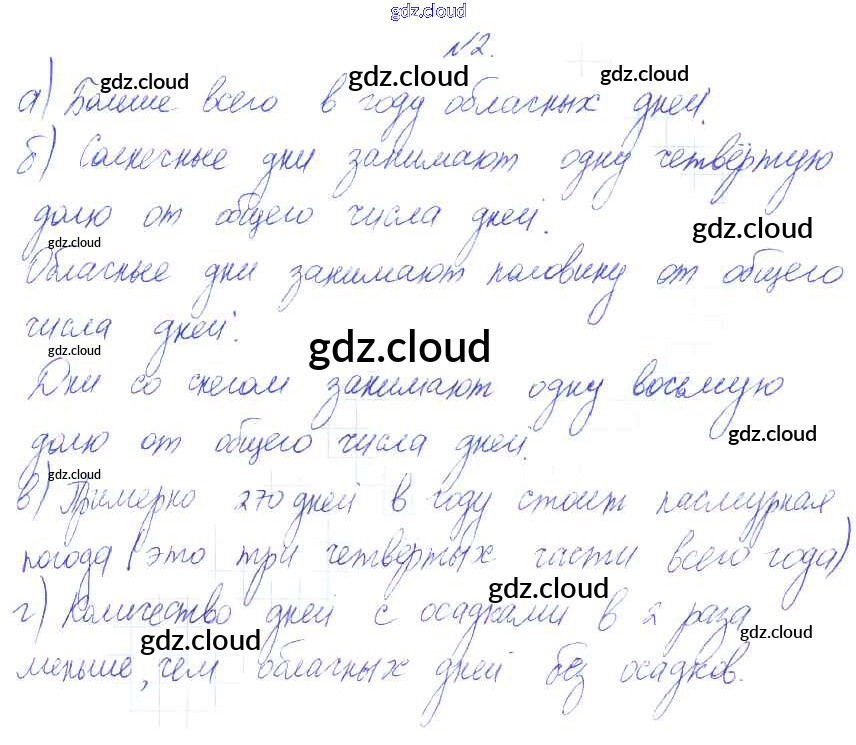 gdz.cloud
№2.
gdz.cloud gdz.cloud gdz.cloud
а) Больше всего в году облачных дней.
б) Солнечные дни занимают одну четвёртую
долю от общего числа дней.
gdz.cloud gdz.cloud
Облачные дни занимают половину от общего
числа дней.
gdz.cloud gdz.cloud
Дни со снегом занимают одну восьмую
долю от общего числа дней.
gdz.cloud gdz.cloud
в) Примерно 270 дней в году стоит пасмурная
погода (это три четвертых части всего года)
gdz.cloud
г) Количество дней с осадками в 2 раза
gdz.cloud gdz.cloud gdz.cloud
меньше, чем облачных дней без осадков.